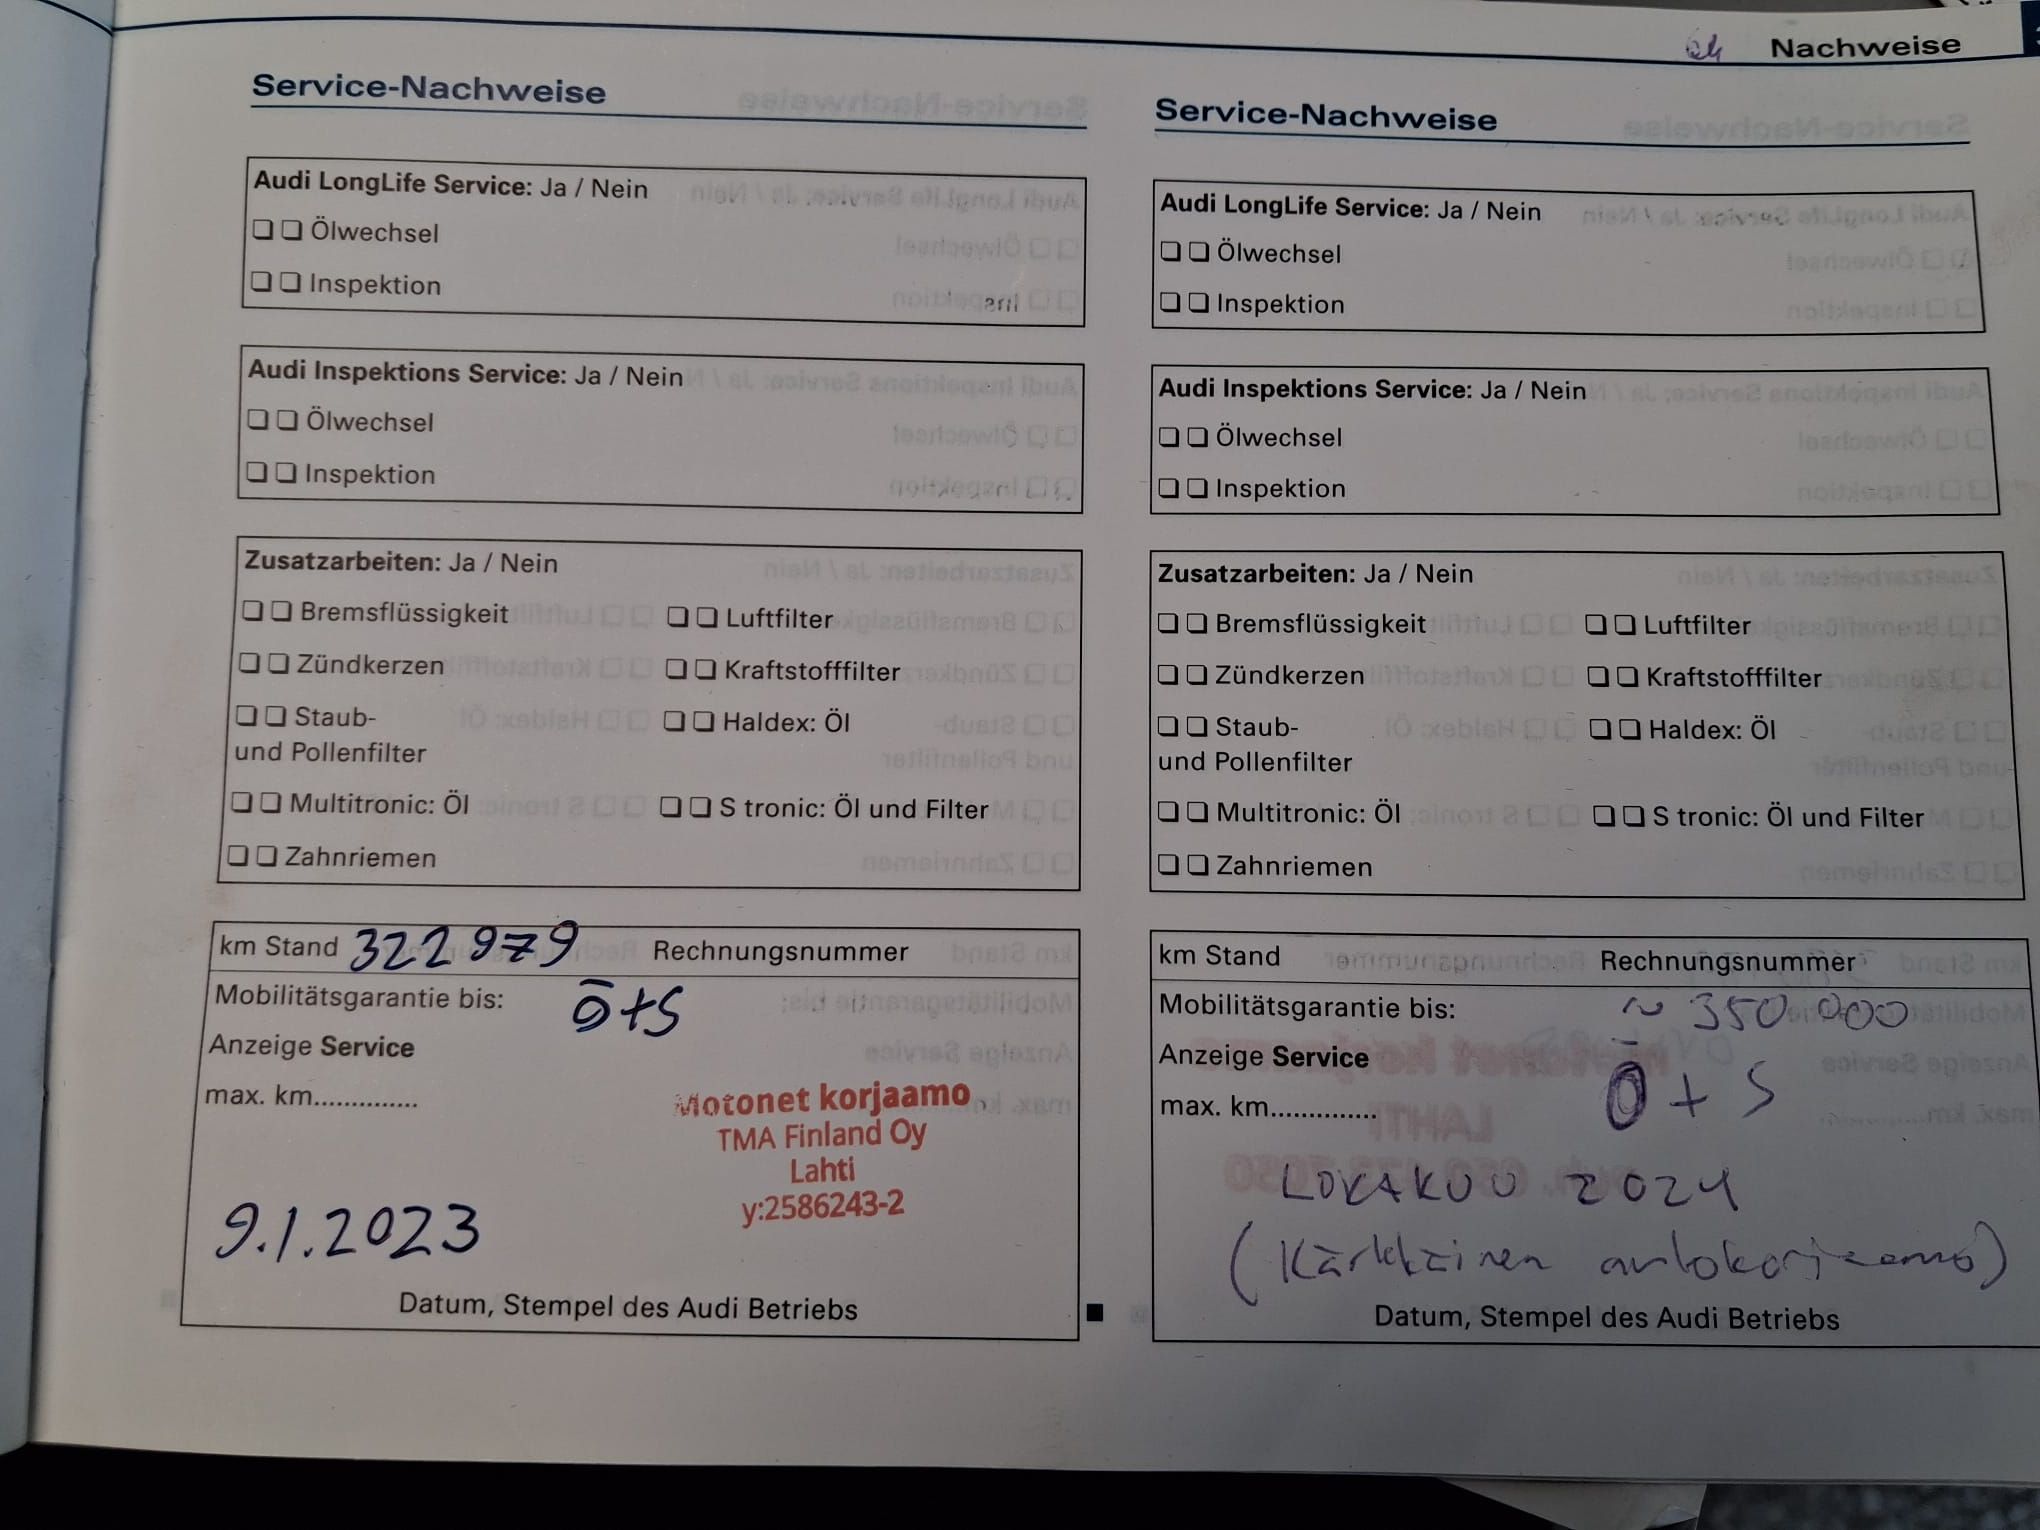 Nachweise
Service-Nachweise
Audi LongLife Service: Ja / Nein
❏ ❏ Ölwechsel
❏ ❏ Inspektion
Audi Inspektions Service: Ja / Nein
❏ ❏ Ölwechsel
❏ ❏ Inspektion
Zusatzarbeiten: Ja / Nein
❏ ❏ Bremsflüssigkeit ❏ ❏ Luftfilter
❏ ❏ Zündkerzen ❏ ❏ Kraftstofffilter
❏ ❏ Staub- ❏ ❏ Haldex: Öl
und Pollenfilter
❏ ❏ Multitronic: Öl ❏ ❏ S tronic: Öl und Filter
❏ ❏ Zahnriemen
km Stand 322979 Rechnungsnummer
Mobilitätsgarantie bis: Ö+S
Anzeige Service
max. km..............
Motonet korjaamo
TMA Finland Oy
Lahti
y:2586243-2
9.1.2023
Datum, Stempel des Audi Betriebs
Service-Nachweise
Audi LongLife Service: Ja / Nein
❏ ❏ Ölwechsel
❏ ❏ Inspektion
Audi Inspektions Service: Ja / Nein
❏ ❏ Ölwechsel
❏ ❏ Inspektion
Zusatzarbeiten: Ja / Nein
❏ ❏ Bremsflüssigkeit ❏ ❏ Luftfilter
❏ ❏ Zündkerzen ❏ ❏ Kraftstofffilter
❏ ❏ Staub- ❏ ❏ Haldex: Öl
und Pollenfilter
❏ ❏ Multitronic: Öl ❏ ❏ S tronic: Öl und Filter
❏ ❏ Zahnriemen
km Stand Rechnungsnummer
Mobilitätsgarantie bis: ~ 350 000
Anzeige Service
max. km.............. Ö + S
LOKAKUU 2024
(Kärkkäinen autokorjaamo)
Datum, Stempel des Audi Betriebs